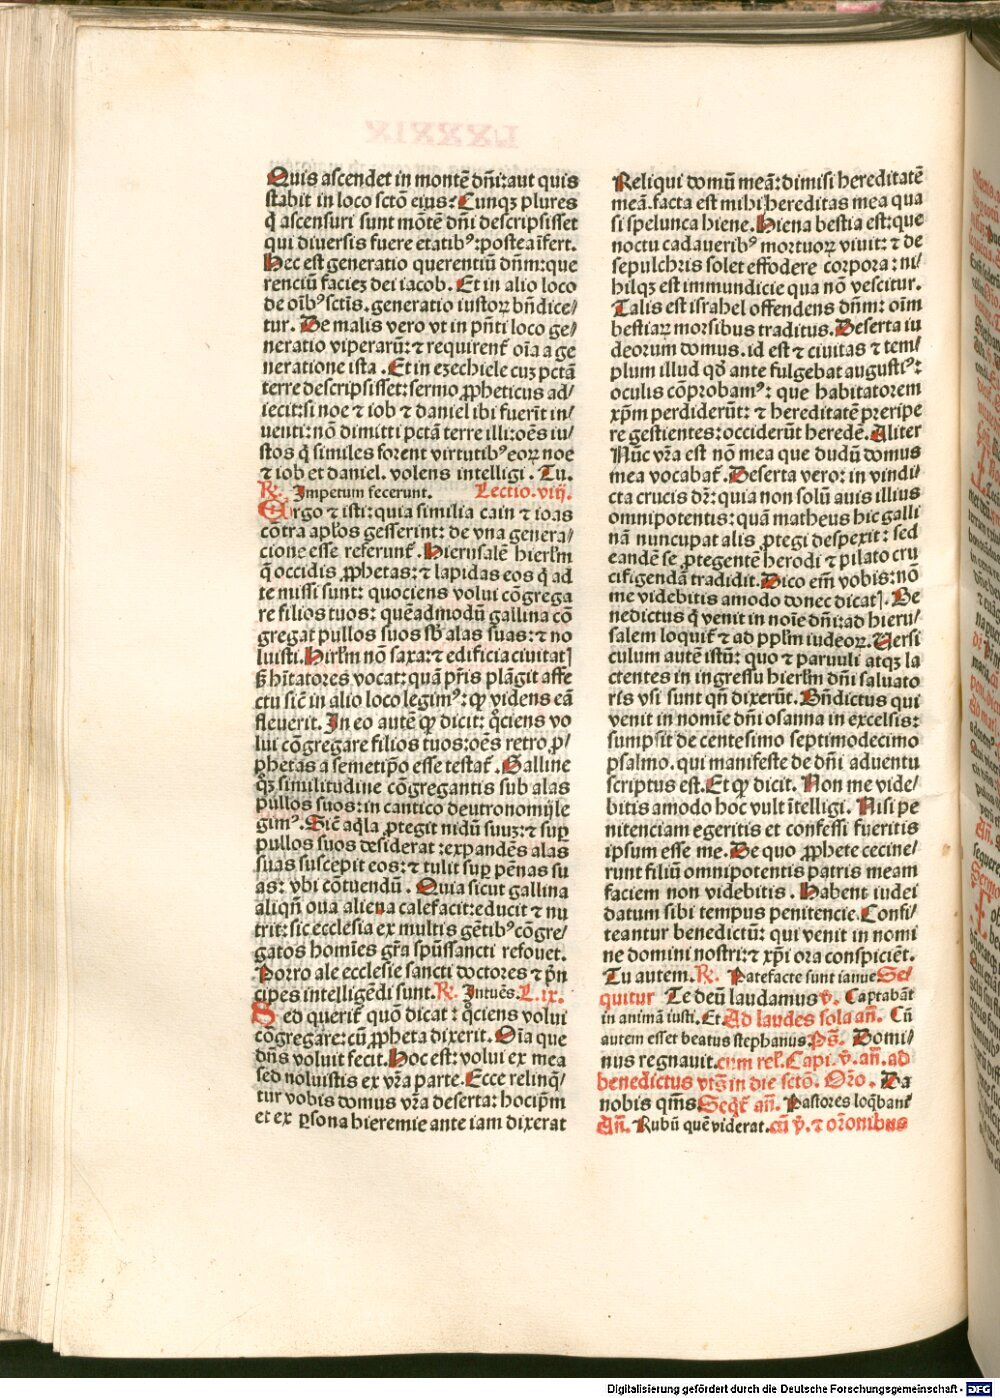 Quis ascendet in montē dn̄i: aut quis
stabit in loco sctō eius? Cunqꝫ plures
q̇ ascensuri sunt mōtē dn̄i descripsisset
qui diuersis fuere etatibꝰ: postea īfert.
Hec est generatio querentiū dn̄m: que
renciū faciez dei iacob. Et in alio loco
de oībꝰ sctīs. generatio iustoꝝ bn̄dice/
tur. De malis vero vt in pn̄ti loco ge/
neratio viperarū: ⁊ requirenť oīa a ge
neratione ista. Et in ezechiele cuꝫ pctām
terre descripsisset: sermo ꝓpheticus ad/
iecit: si noe ⁊ iob ⁊ daniel ibi fuerīt in/
uenti: nō dimitti pctā terre illi: oēs iu/
stos q̇ similes forent virtutibꝰ eoꝝ noe
⁊ iob et daniel. volens intelligi. Tu.
R̄. Impetum fecerunt. Lectio. viij.
Ergo ⁊ isti: quia similia cain ⁊ ioas
cōtra ap̄los gesserint: de vna genera/
cione esse referunť. Hierusalē hierl̄m
q̄ occidis ꝓphetas: ⁊ lapidas eos q̇ ad
te missi sunt: quociens volui cōgrega
re filios tuos: quēadmodū gallina cō
gregat pullos suos sb̄ alas suas: ⁊ no
luisti. Hirl̄m nō saxa: ⁊ edificia ciuitatꝭ
sꝫ hītatores vocat: quā pr̄is plāgit affe
ctu sic̄ in alio loco legimꝰ: ꝙ videns eā
fleuerit. In eo autē ꝙ dicit: q̇ciens vo
lui cōgregare filios tuos: oēs retro ꝓ/
phetas a semetip̄o esse testať. Galline
qꝫ similitudine cōgregantis sub alas
pullos suos: in cantico deutronomij le
gimꝰ. Sic̄ aq̇la ꝓtegit nidū suuꝫ: ⁊ suꝑ
pullos suos desiderat: expandēs alas
suas suscepit eos: ⁊ tulit suꝑ pēnas su
as: vbi cōtuendū. Quia sicut gallina
aliqn̄ oua aliena calefacit: educit ⁊ nu
trit: sic ecclesia ex multis gētibꝰ cōgre/
gatos homīes gr̄a spūssancti refouet.
Porro ale ecclesie sancti doctores ⁊ pn̄
cipes intelligēdi sunt. R̄. Intuēs. L. ix.
Sed queriť quō dicat: q̇ciens volui
cōgregare: cū ꝓpheta dixerit. Oīa que
dn̄s voluit fecit. Hoc est: volui ex mea
sed noluistis ex vr̄a parte. Ecce relinq̇/
tur vobis domus vr̄a deserta: hocip̄m
et ex ꝑsona hieremie ante iam dixerat
Reliqui domū meā: dimisi hereditatē
meā. facta est mihi hereditas mea qua
si spelunca hiene. Hiena bestia est: que
noctu cadaueribꝰ mortuoꝝ viuit: ⁊ de
sepulchris solet effodere corpora: ni/
hilqꝫ est immundicie qua nō vescitur.
Talis est israhel offendens dn̄m: oīm
bestiaꝝ morsibus traditus. Deserta iu
deorum domus. id est ⁊ ciuitas ⁊ tem/
plum illud qd̄ ante fulgebat augustiꝰ:
oculis cōprobamꝰ: que habitatorem
xp̄m perdiderūt: ⁊ hereditatē preripe
re gestientes: occiderūt heredē. Aliter
Nūc vr̄a est nō mea que dudū domus
mea vocabať. Deserta vero: in vindi
cta crucis dr̄: quia non solū auis illius
omnipotentis: quam matheus hic galli
nā nuncupat alis ꝓtegi despexit: sed
eandē se ꝓtegentē herodi ⁊ pilato cru
cifigendā tradidit. Dico em̄ vobis: nō
me videbitis amodo donec dicatꝭ. Be
nedictus q̇ venit in noīe dn̄i: ad hieru/
salem loquiť ⁊ ad pplm̄ iudeoꝝ. Versi
culum autē istū: quo ⁊ paruuli atqꝫ la
ctentes in ingressu hierl̄m dn̄i saluato
ris vsi sunt qn̄ dixerūt. Bn̄dictus qui
venit in nomīe dn̄i osanna in excelsis:
sumpsit de centesimo septimodecimo
psalmo. qui manifeste de dn̄i aduentu
scriptus est. Et ꝙ dicit. Non me vide/
bitis amodo hoc vult ītelligi. Nisi pe
nitenciam egeritis et confessi fueritis
ipsum esse me. De quo ꝓphete cecine/
runt filiū omnipotentis patris meam
faciem non videbitis. Habent iudei
datum sibi tempus penitencie. Confi/
teantur benedictū: qui venit in nomi
ne domini nostri: ⁊ xp̄i ora conspiciēt.
Tu autem. R̄. Patefacte sunt ianue Se/
quitur Te deū laudamus v̄. Captabāt
in animā iusti. Et. Ad laudes sola an̄. Cū
autem esset beatus stephanus. Ps̄. Domi/
nus regnauit. cum rel̄. Capi. v̄. an̄. ad
benedictus vtꝫ in die sctō. Or̄o. Da
nobis qm̄s Seqť an̄. Pastores loq̄banť
An̄. Rubū quē viderat. cū v̄. ⁊ or̄onibus
Digitalisierung gefördert durch die Deutsche Forschungsgemeinschaft - DFG